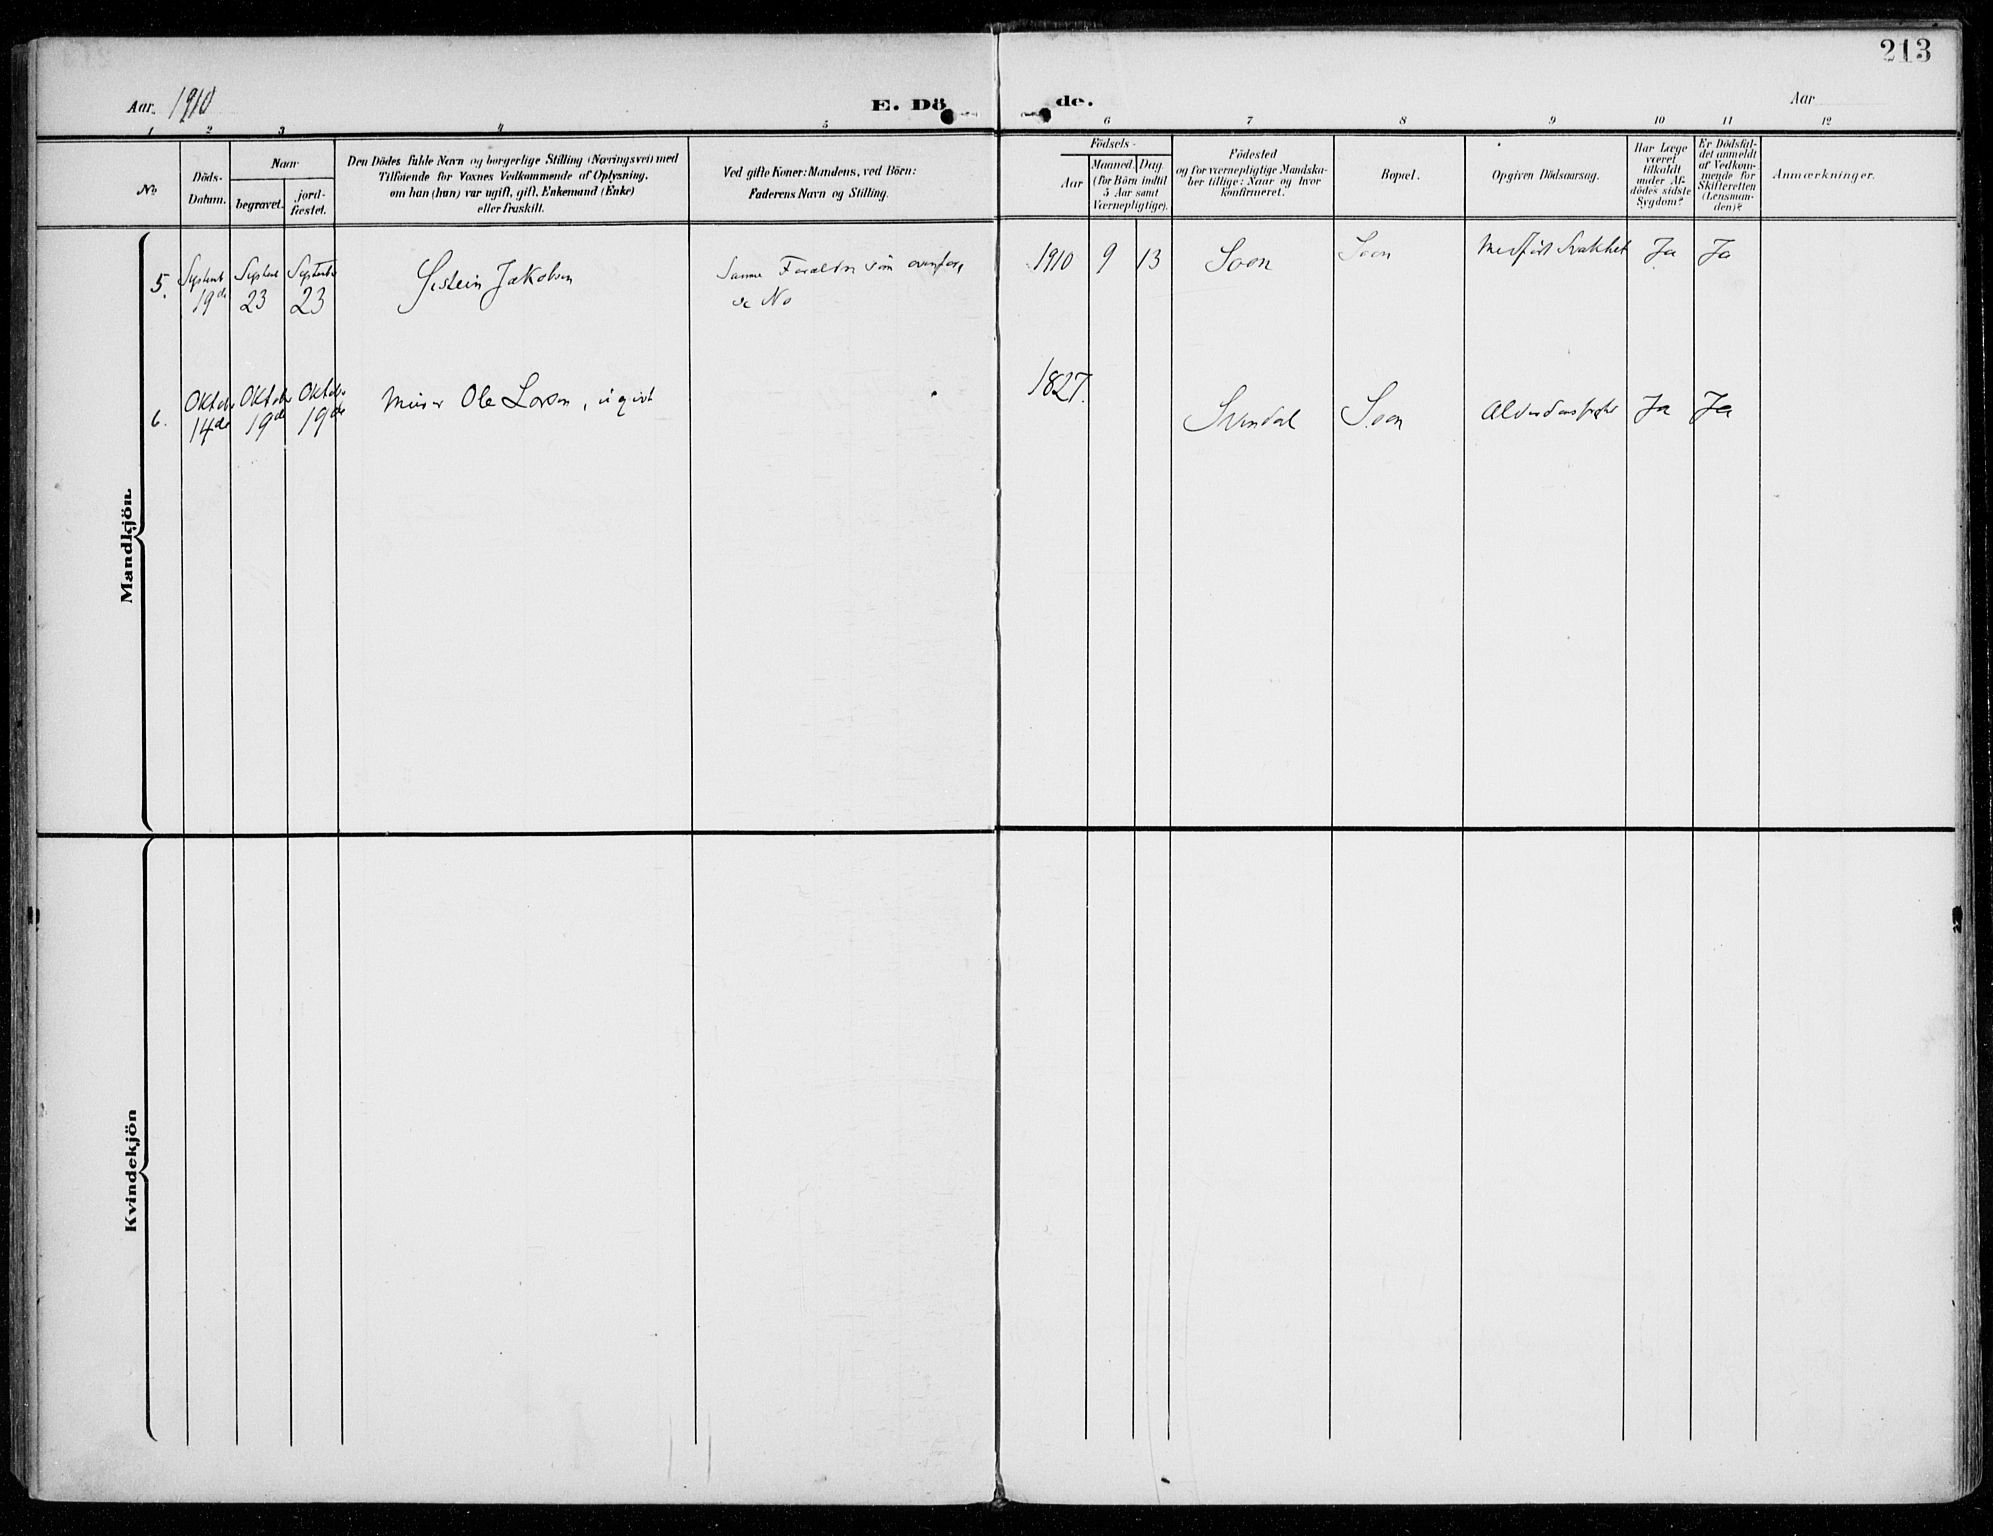 213
Aar 1910
E. Döde.
Aar
1 2 3 4 5 6 7 8 9 10 11 12
No
Döds-
Datum.
Naar
begravet.
jord-
fæstet.
Den Dödes fulde Navn og borgerlige Stilling (Næringsvei) med
Tilföiende for Voxnes Vedkommende af Oplysning,
om han (hun) var ugift, gift, Enkemand (Enke)
eller fraskilt.
Ved gifte Koner: Mandens, ved Börn:
Faderens Navn og Stilling.
Födsels-
Aar
Maaned. Dag.
(for Börn indtil
5 Aar samt
Værnepligtige).
Födested
og for værnepligtige Mandska-
ber tillige: Naar og hvor
konfirmeret.
Bopæl.
Opgiven Dödsaarsag.
Har Læge
været
tilkaldt
under Af-
dödes sidste
Sygdom?
Er Dödsfal-
det anmeldt
af Vedkom-
mende for
Skifteretten
(Lensman-
den)?
Anmærkninger.
Mandkjön.
5. Septemb 19de Septemb 23 Septemb 23
Øistein Jakobsen
Samme Forældre som ovenfor,
se No
1910 9 13 Soon Soon Medfødt Svakhet Ja Ja
6. Oktober 14de Oktober 19de Oktober 19de
Murer Ole Larsen, ugivt
1827. Soon Alderdoms Ja Ja
Kvindekjön